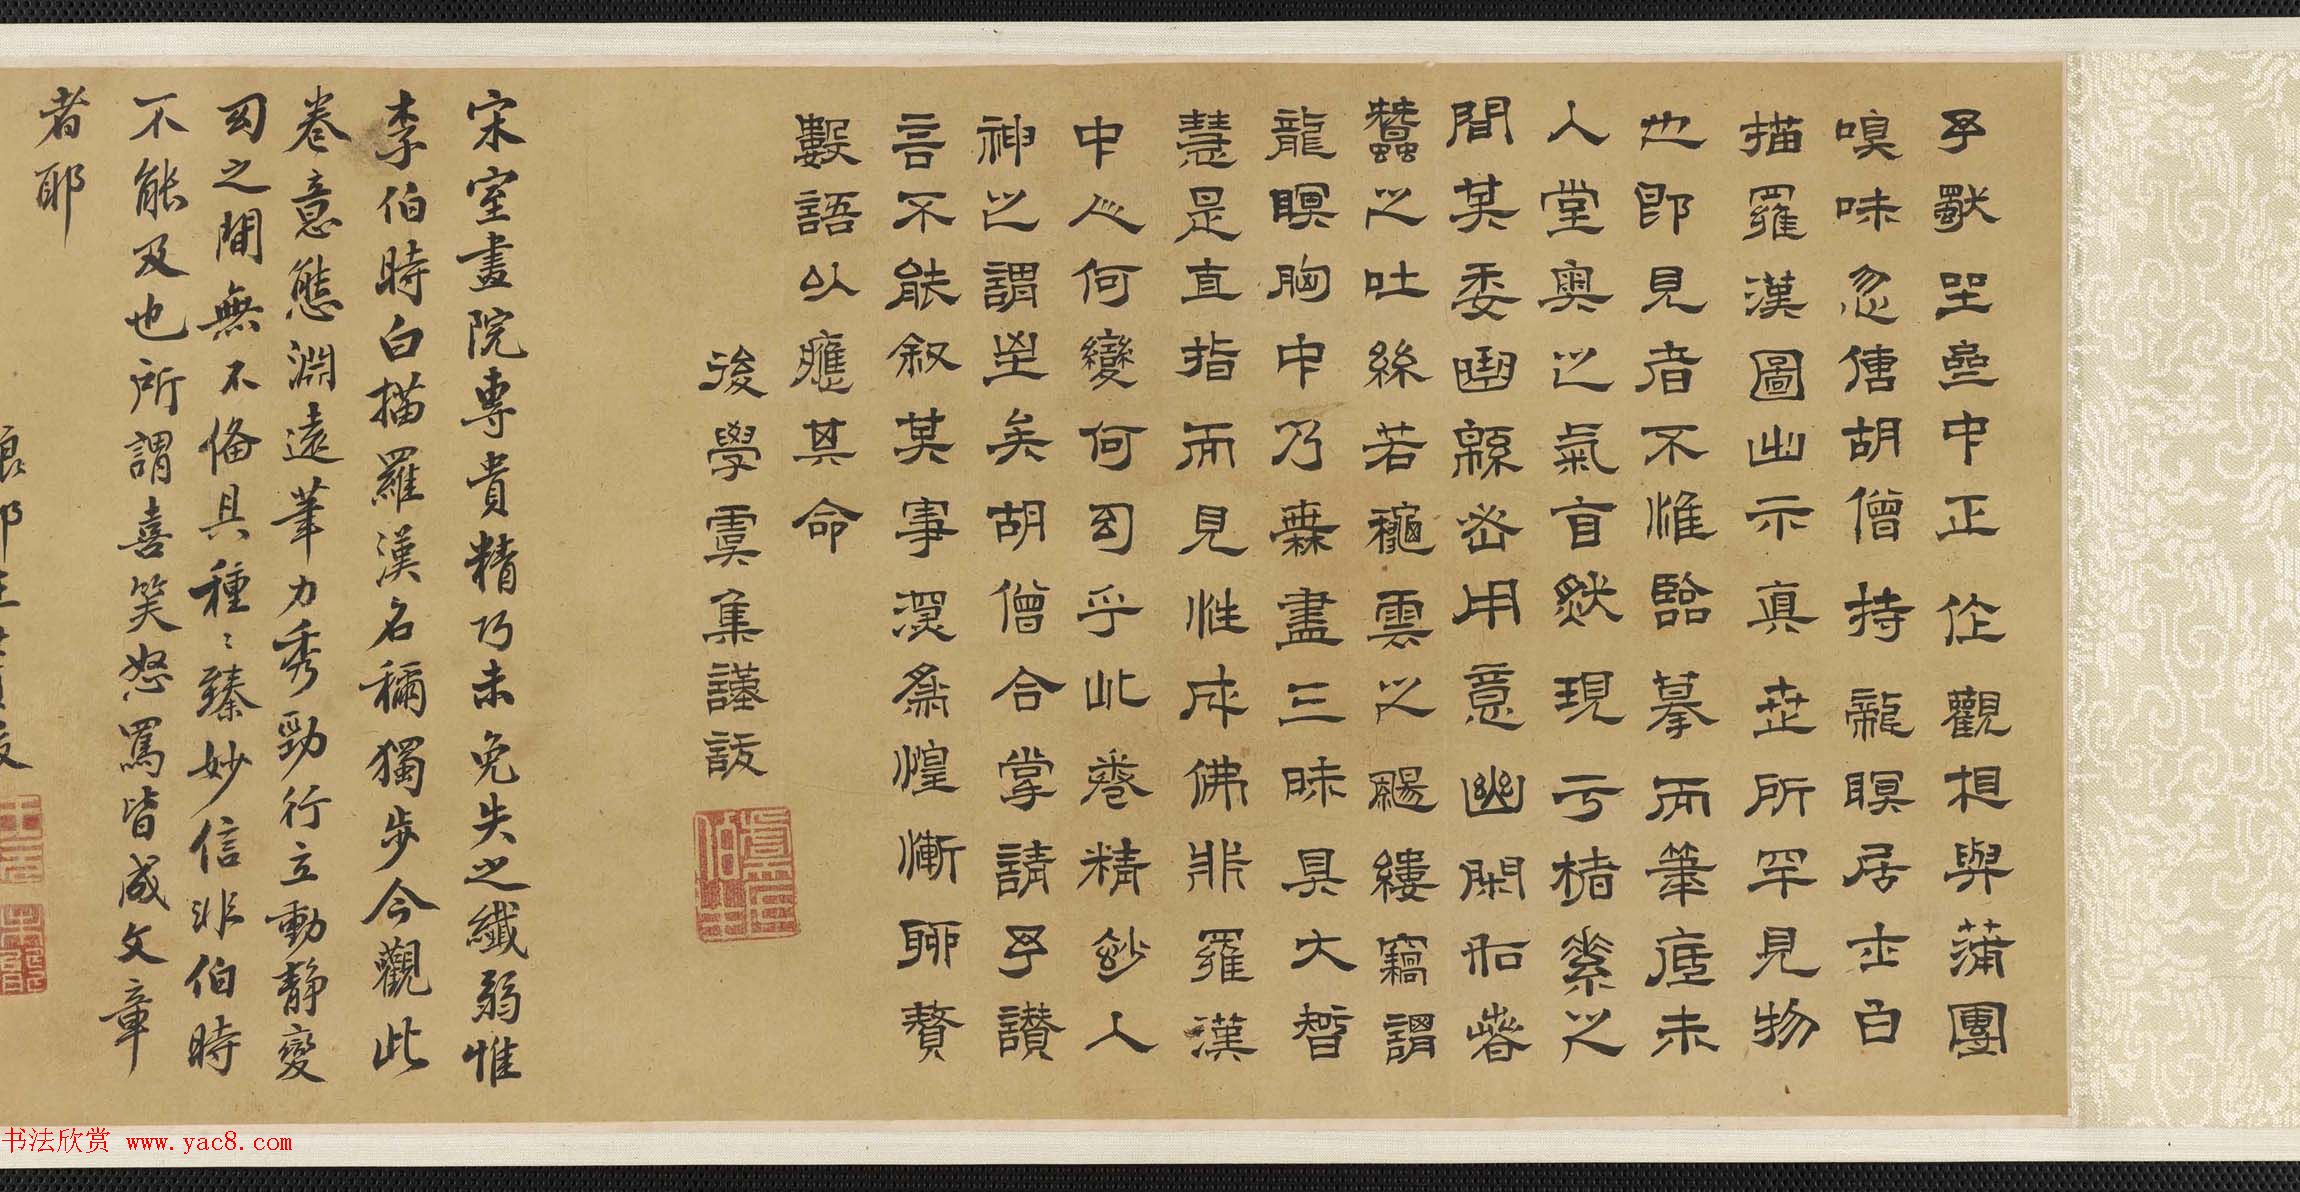 予默坐壺中正作觀想與蒲團
嗅味忽胡僧持龍瞑居士白
描羅漢圖出示真世所罕見物
也即見者不惟臨摹而筆底未
人堂奧之氣盲然現亏楮素之
間其委曲綿密用意幽閑如春
蠶之吐絲若秋雲之颺縷竊謂
龍瞑胸中乃無盡三昧具大智
慧是直指而見性成佛非羅漢
中人何變何幻乎此卷精妙入
神之謂至矣胡僧合掌請予讚
言不能叙其事深為惶慚聊贅
數語以應其命
後學虞集謹跋
宋室畫院專貴精巧未免失之纖弱惟
李伯時白描羅漢名稱獨步今觀此
卷意態淵遠筆力秀勁行立動静變
幻之間無不俻具種種臻妙信非伯時
不能及也所謂喜笑怒罵皆成文章
者耶
书法欣赏 www.yac8.com